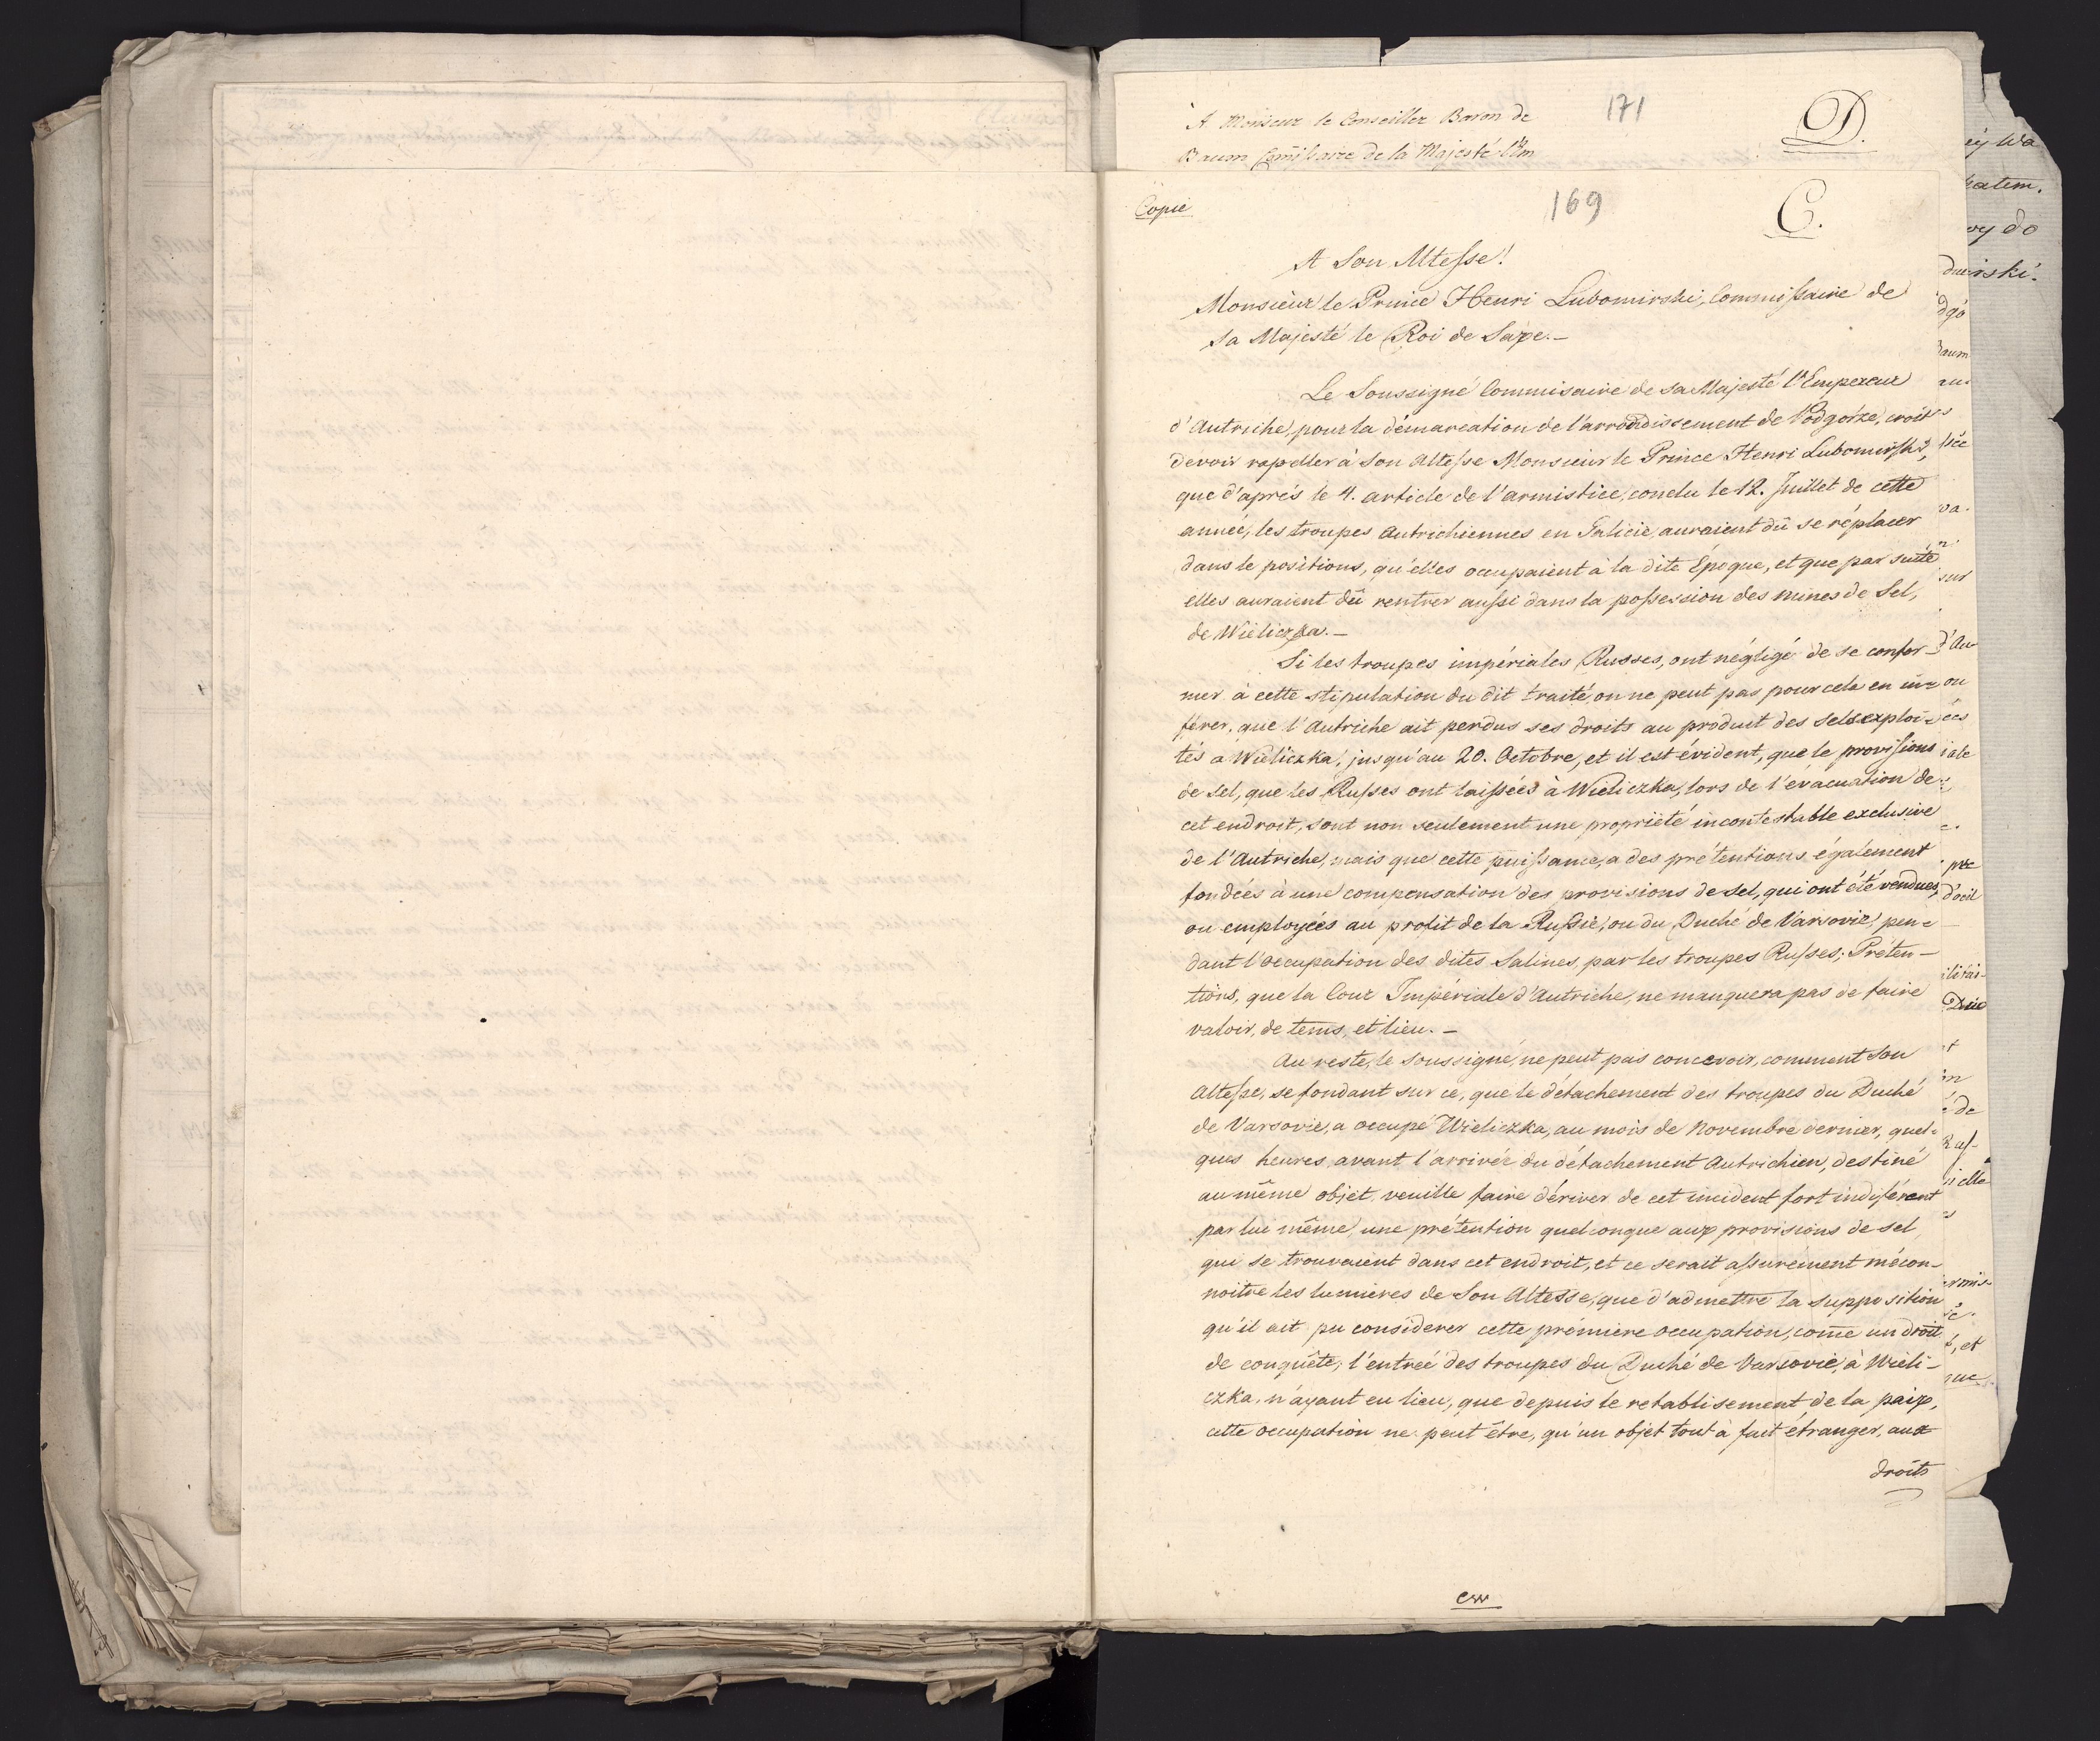 A Monsieur le Conseiller Baron de
171
D.
Baum Com̄issaire de la Majesté l'Em
Copie
169
C.
A Son Altesse!
Monsieur le Prince Henri Lubomirski, Commissaire de
Sa Majesté le Roi de Saxe.—
Le Soussigné Commisaire de sa Majesté l'Empereur
d'Autriche, pour la démarcation de l'arrondissement de Podgórze, croit
devoir rapeller à Son Altesse Monsieur le Prince Henri Lubomirski,
que d'aprés le 4. article de l'armistice, conclu le 12. Juillet de cette
année, les troupes Autrichiennes en Galicie, auraient dû se réplacer
dans le positions, qu'elles occupaient à la dite Époque, et que par suite
elles auraient dû rentrer aussi dans la possession des mines de Sel,
de Wieliczka.—
Si les troupes impériales Russes, ont négligé de se confor-
mer à cette stipulation du dit traité, on ne peut pas pour cela en in=
férer, que l'Autriche ait perdus ses droits au produit des sels exploi=
tés a Wieliczka, jusqu'au 20. Octobre, et il est évident, que le provisions
de sel, que les Russes ont laissées à Wieliczka, lors de l'évacuation de
cet endroit, sont non seulement une propriété incontestable exclusive
de l'Autriche, mais que cette puissance, a des prétentions également
fondées à une compensation des provisions de sel, qui ont été vendues,
ou employées au profit de la Russie, ou du Duché de Varsovie, pen=
dant l'occupation des dites Salines, par les troupes Russes; Préten—
tions, que la Cour Impériale d'Autriche, ne manquera pas de faire
valoir, de tems, et lieu.—
Au reste, le soussigné, ne peut pas concevoir, comment Son
Altesse, se fondant sur ce, que le détachement des troupes du Duché
de Varsovie, a occupé Wieliczka, au mois de Novembre dernier, quel=
ques heures, avant l'arrivée du détachement Autrichien, destiné
au même objet, veuille faire dériver de cet incident fort indiférent
par lui même, une prétention quelconque aux provisions de sel,
qui se trouvaient dans cet endroit, et ce serait assurément mécon-
noitre les lumieres de Son Altesse, que d'admettre la supposition
qu'il ait pu considerer cette prémiere occupation, com̄e un droit
de conquête; l'entreé des troupes du Duché de Varsovie, à Wieli-
czka, n'ayant eu lieu, que depuis le retablisement de la paix,
cette occupation ne peut être, qu'un objet tout à fait étranger, aux
droits